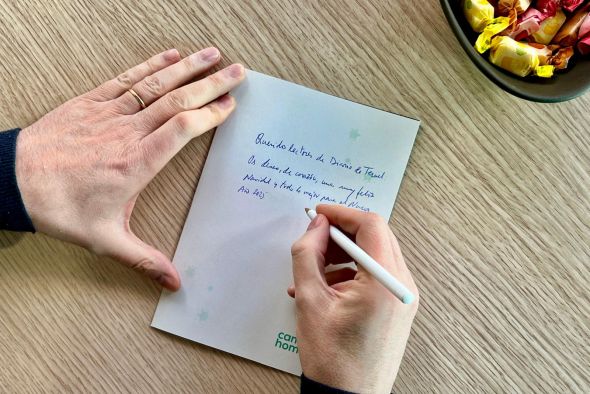 Querido lectores de Diario de Teruel
Os deseo, de corazón, una muy feliz
Navidad y todo lo mejor para el Nuevo
Año 2025
can
hom